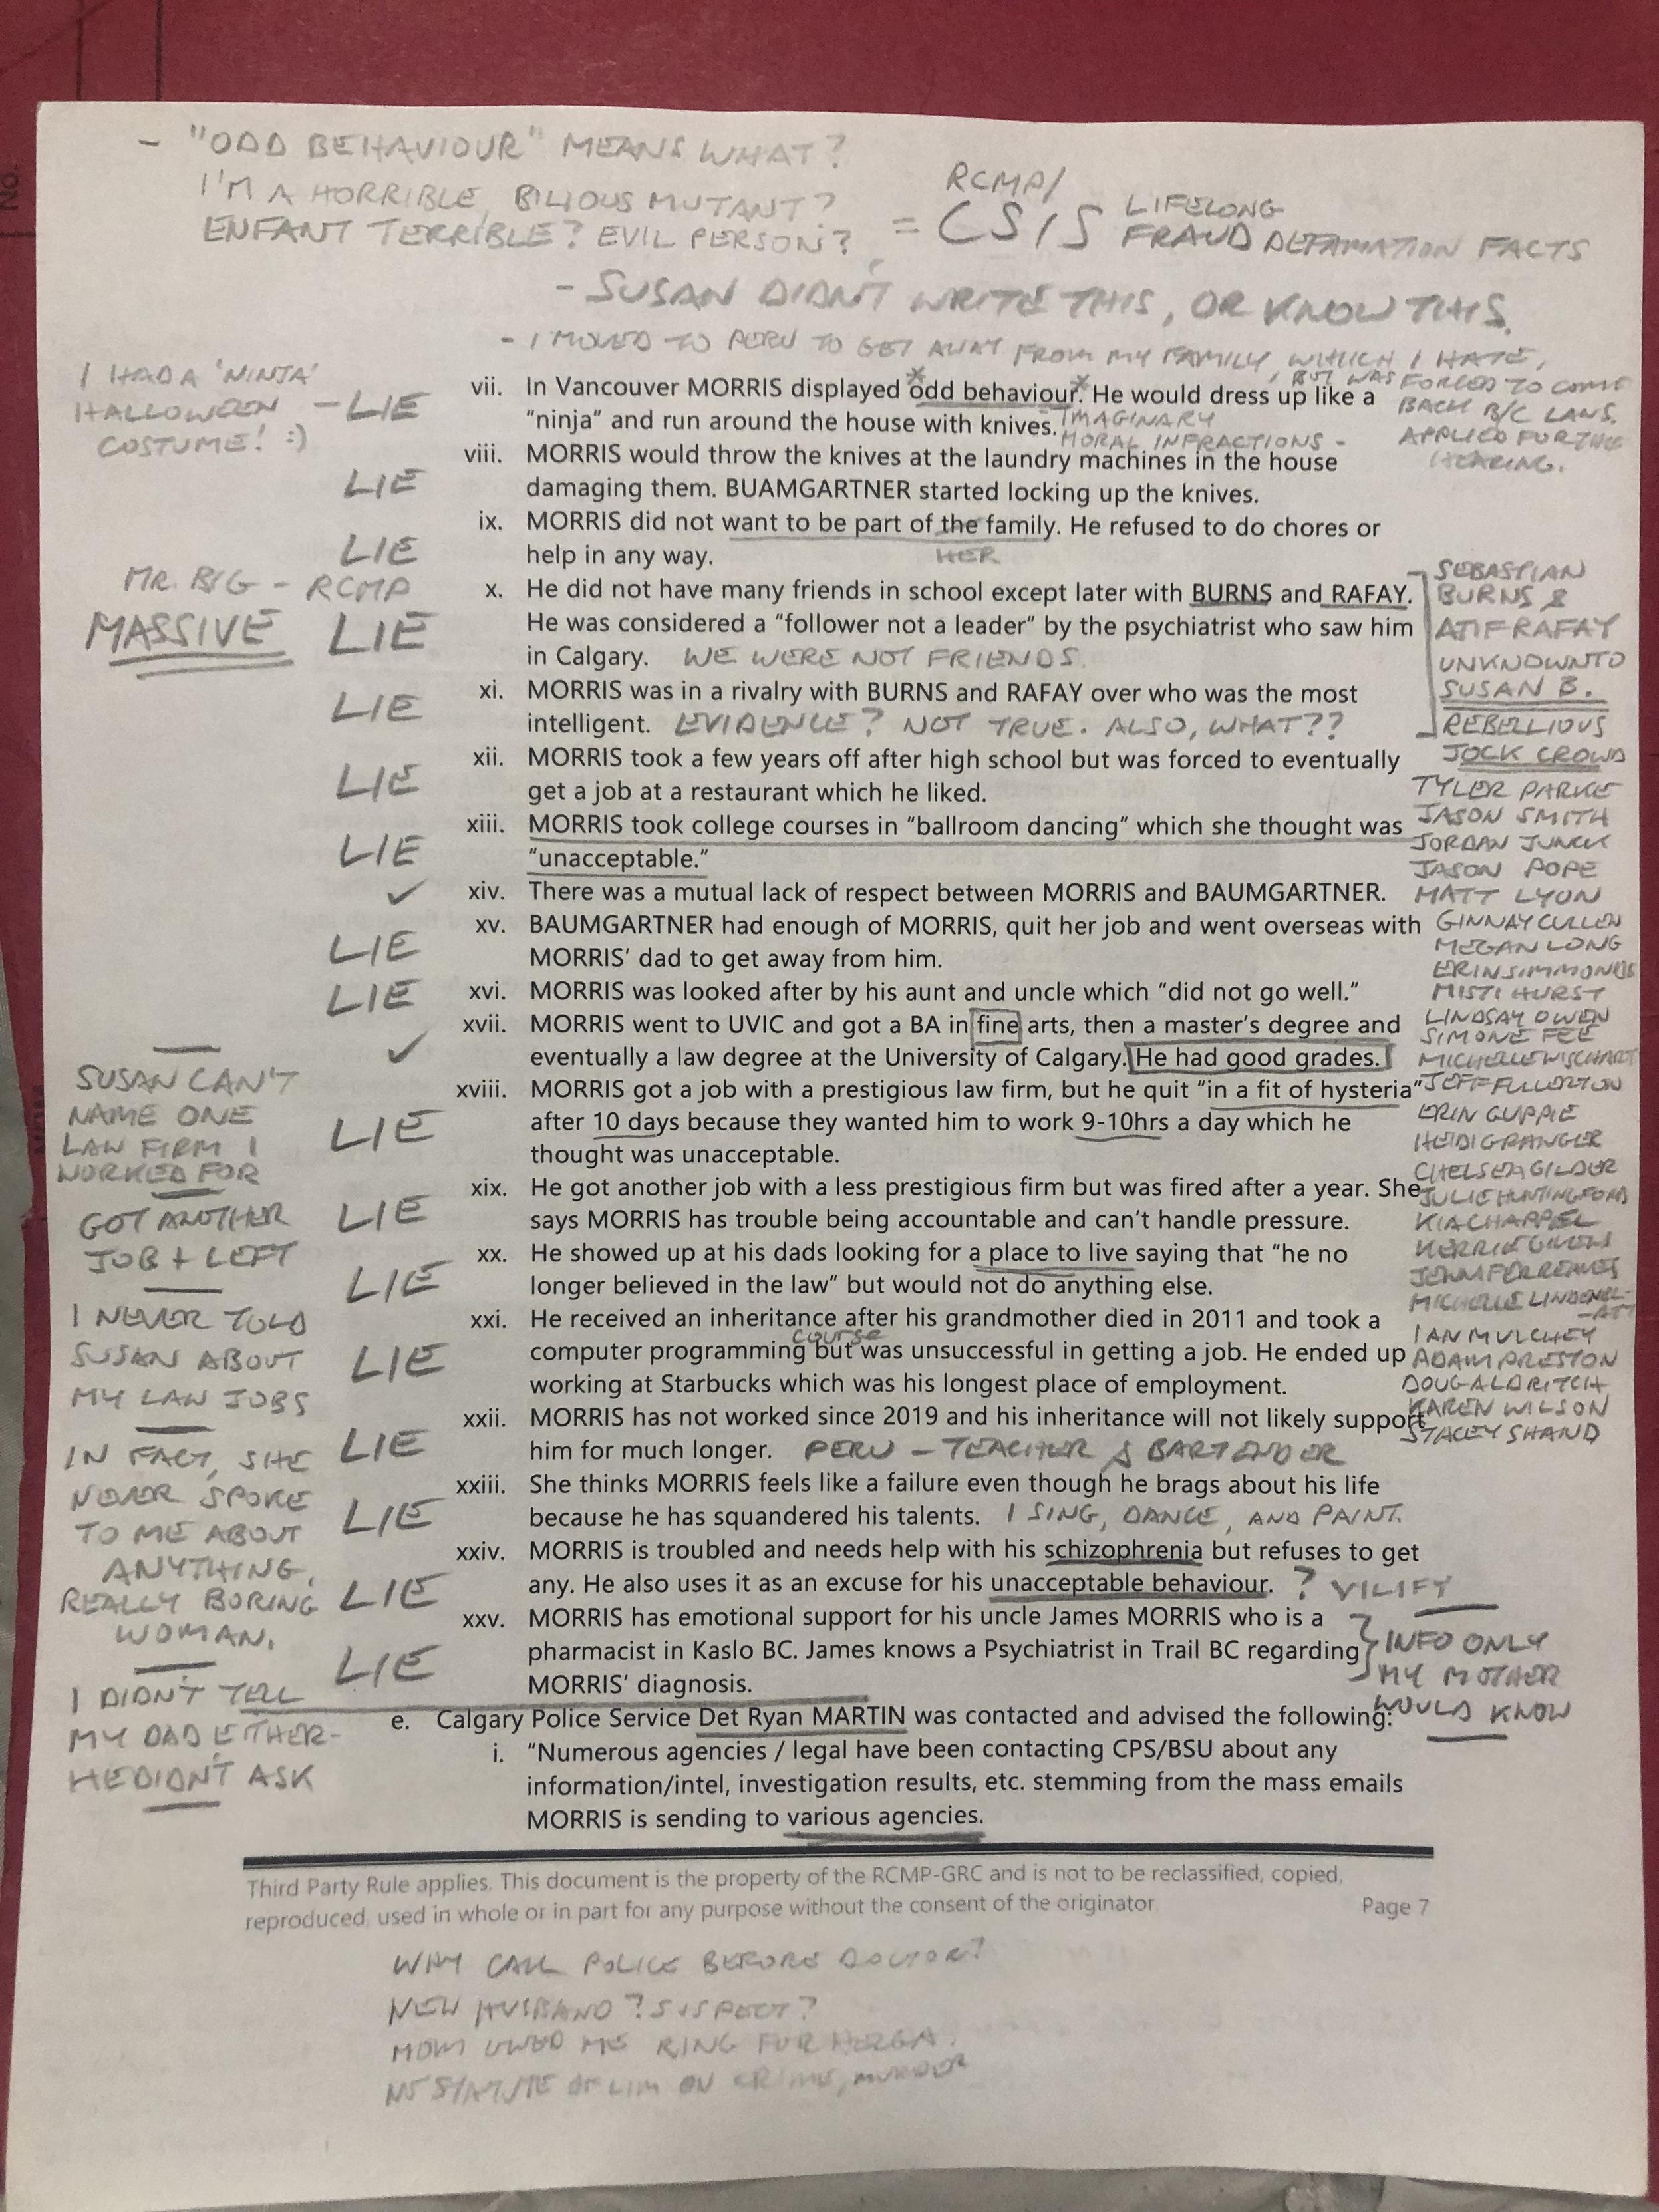 - "ODD BEHAVIOUR" MEANS WHAT?
I'M A HORRIBLE, BILIOUS MUTANT?
ENFANT TERRIBLE? EVIL PERSON?
= RCMP/
CSIS LIFELONG
FRAUD DEFAMATION FACTS
- SUSAN DIDN'T WRITE THIS, OR KNOW THIS.
- I MOVED TO PERU TO GET AWAY FROM MY FAMILY, WHICH I HATE,
BUT WAS FORCED TO COME
BACK B/C LAWS.
APPLIED FOR THIS
HEARING.
I HAD A 'NINJA'
HALLOWEEN - LIE
COSTUME! :)
vii. In Vancouver MORRIS displayed odd behaviour. He would dress up like a
"ninja" and run around the house with knives. IMAGINARY
MORAL INFRACTIONS -
LIE
viii. MORRIS would throw the knives at the laundry machines in the house
damaging them. BUAMGARTNER started locking up the knives.
LIE
ix. MORRIS did not want to be part of the family. He refused to do chores or
help in any way. HER
MR. BIG - RCMP
MASSIVE LIE
x. He did not have many friends in school except later with BURNS and RAFAY.
He was considered a "follower not a leader" by the psychiatrist who saw him
in Calgary. WE WERE NOT FRIENDS.
LIE
xi. MORRIS was in a rivalry with BURNS and RAFAY over who was the most
intelligent. EVIDENCE? NOT TRUE. ALSO, WHAT??
LIE
xii. MORRIS took a few years off after high school but was forced to eventually
get a job at a restaurant which he liked.
LIE
xiii. MORRIS took college courses in "ballroom dancing" which she thought was
"unacceptable."
✓
xiv. There was a mutual lack of respect between MORRIS and BAUMGARTNER.
LIE
xv. BAUMGARTNER had enough of MORRIS, quit her job and went overseas with
MORRIS' dad to get away from him.
LIE
xvi. MORRIS was looked after by his aunt and uncle which "did not go well."
✓
xvii. MORRIS went to UVIC and got a BA in fine arts, then a master's degree and
eventually a law degree at the University of Calgary. He had good grades.
LIE
xviii. MORRIS got a job with a prestigious law firm, but he quit "in a fit of hysteria"
after 10 days because they wanted him to work 9-10hrs a day which he
thought was unacceptable.
LIE
xix. He got another job with a less prestigious firm but was fired after a year. She
says MORRIS has trouble being accountable and can't handle pressure.
LIE
xx. He showed up at his dads looking for a place to live saying that "he no
longer believed in the law" but would not do anything else.
LIE
xxi. He received an inheritance after his grandmother died in 2011 and took a
course
computer programming but was unsuccessful in getting a job. He ended up
working at Starbucks which was his longest place of employment.
LIE
xxii. MORRIS has not worked since 2019 and his inheritance will not likely support
him for much longer. PERU - TEACHER & BARTENDER
LIE
xxiii. She thinks MORRIS feels like a failure even though he brags about his life
because he has squandered his talents. I SING, DANCE, AND PAINT.
LIE
xxiv. MORRIS is troubled and needs help with his schizophrenia but refuses to get
any. He also uses it as an excuse for his unacceptable behaviour. ? VILIFY
LIE
xxv. MORRIS has emotional support for his uncle James MORRIS who is a
pharmacist in Kaslo BC. James knows a Psychiatrist in Trail BC regarding
MORRIS' diagnosis.
INFO ONLY
MY MOTHER
WOULD KNOW
e. Calgary Police Service Det Ryan MARTIN was contacted and advised the following:
i. "Numerous agencies / legal have been contacting CPS/BSU about any
information/intel, investigation results, etc. stemming from the mass emails
MORRIS is sending to various agencies.
SUSAN CAN'T
NAME ONE
LAW FIRM I
WORKED FOR
GOT ANOTHER
JOB + LEFT
I NEVER TOLD
SUSAN ABOUT
MY LAW JOBS
IN FACT, SHE
NEVER SPOKE
TO ME ABOUT
ANYTHING.
REALLY BORING
WOMAN.
I DIDN'T TELL
MY DAD EITHER-
HE DIDN'T ASK
SEBASTIAN
BURNS &
ATIF RAFAY
UNKNOWN TO
SUSAN B.
REBELLIOUS
JOCK CROWD
TYLER PARKE
JASON SMITH
JORDAN JUNCK
JASON POPE
MATT LYON
GINNAY CULLEN
MEGAN LONG
ERIN SIMMONDS
MISTI HURST
LINDSAY OWEN
SIMONE FEE
MICHELLE WISCHART
JEFF FULLERTON
ERIN GUPPIE
HEIDI GRANGER
CHELSEA GILDER
JULIE HUNTINGFORD
KIA CHAPPEL
KERRIE
JENNIFER
MICHELLE
IAN MULCHEY
ADAM PRESTON
DOUG ALDRITCH
KAREN WILSON
STACEY SHAND
Third Party Rule applies. This document is the property of the RCMP-GRC and is not to be reclassified, copied,
reproduced, used in whole or in part for any purpose without the consent of the originator. Page 7
WHY CALL POLICE BEFORE DOCTOR?
NEW HUSBAND? SUSPECT?
MOM OWED ME RING FOR HELGA.
STATUTE OF LIM ON CRIME, MURDER
No.